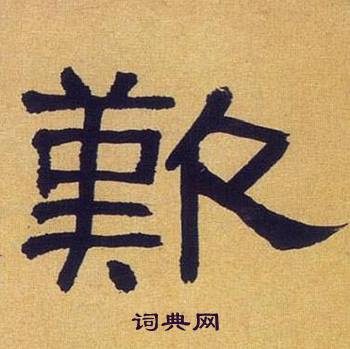 歎
词典网